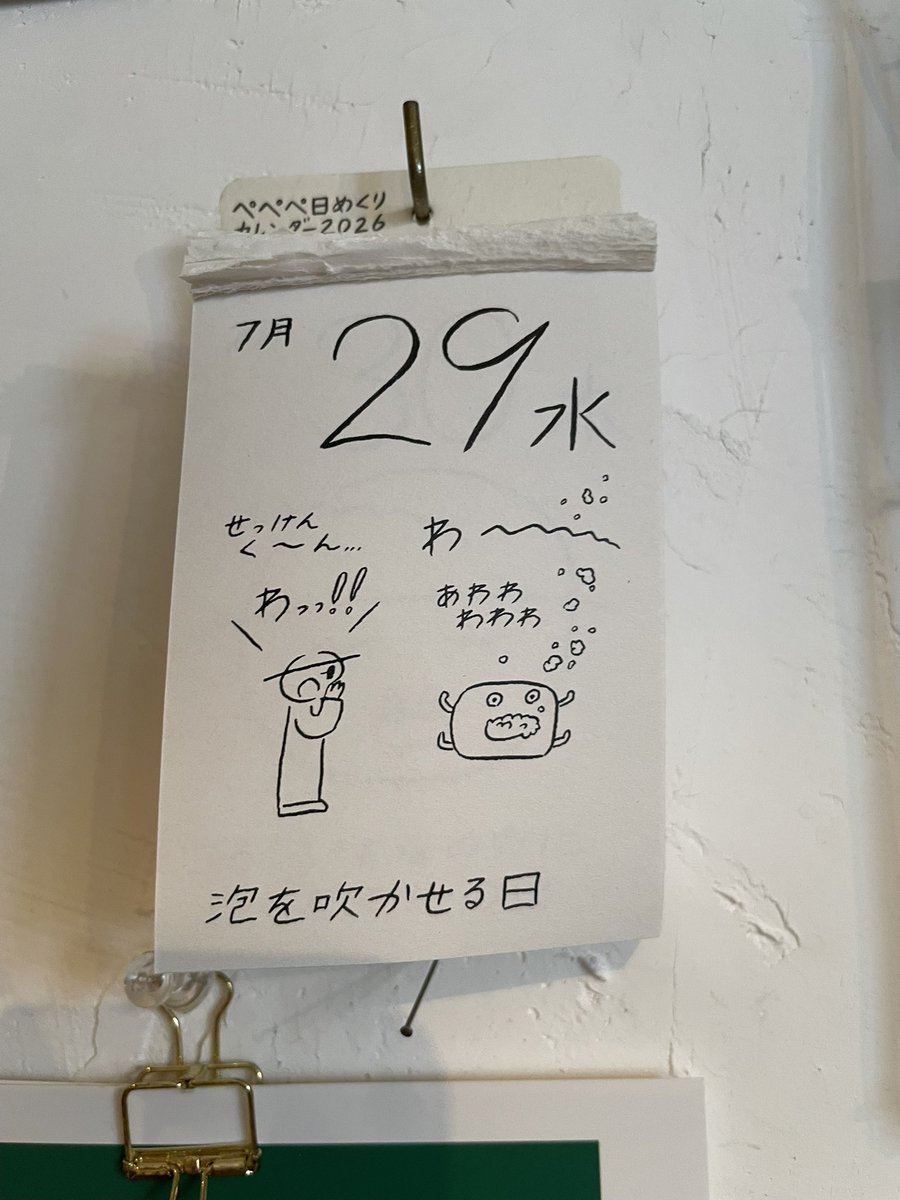 ぺぺぺ日めくり
カレンダー2026
7月
29
水
せっけん
く〜ん…
わっっ!!
わ〜〜〜
あわわ
わわわ
泡を吹かせる日